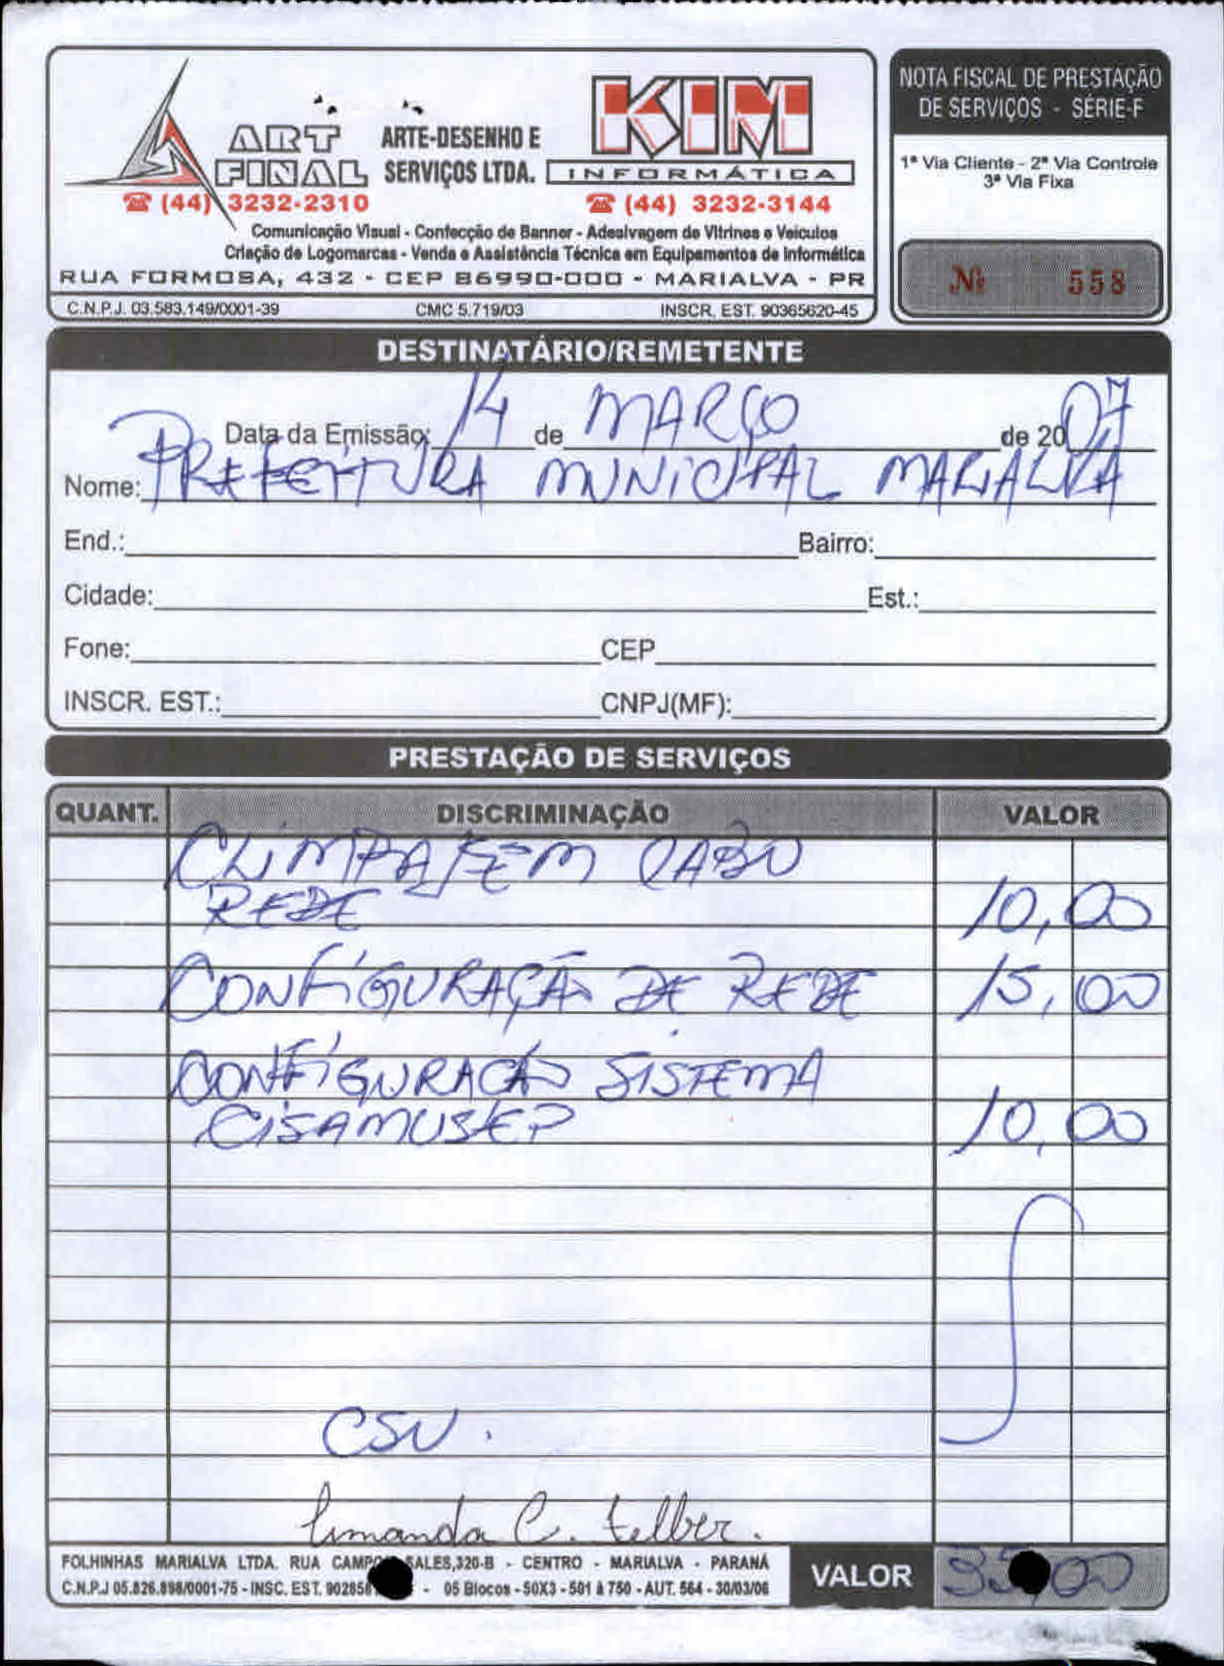 ART FINAL
ARTE-DESENHO E SERVIÇOS LTDA.
KIM
INFORMÁTICA
☎ (44) 3232-2310
☎ (44) 3232-3144
Comunicação Visual - Confecção de Banner - Adesivagem de Vitrines e Veículos
Criação de Logomarcas - Venda e Assistência Técnica em Equipamentos de Informática
RUA FORMOSA, 432 - CEP 86990-000 - MARIALVA - PR
C.N.P.J. 03.583.149/0001-39 CMC 5.719/03 INSCR. EST. 90365620-45
NOTA FISCAL DE PRESTAÇÃO
DE SERVIÇOS - SÉRIE-F
1ª Via Cliente - 2ª Via Controle
3ª Via Fixa
Nº 558
DESTINATÁRIO/REMETENTE
Data da Emissão: 14 de MARÇO de 2007
Nome: PREFEITURA MUNICIPAL MARIALVA
End.: Bairro:
Cidade: Est.:
Fone: CEP
INSCR. EST.: CNPJ(MF):
PRESTAÇÃO DE SERVIÇOS
QUANT. DISCRIMINAÇÃO VALOR
CLIMPAJEM CABO
REDE 10,00
CONFIGURAÇÃO DE REDE 15,00
CONFIGURAÇÃO SISTEMA
CISAMUSEP 10,00
CSU.
C. Felber.
FOLHINHAS MARIALVA LTDA. RUA CAMPO SALES,320-B - CENTRO - MARIALVA - PARANÁ
C.N.P.J 05.826.898/0001-75 - INSC. EST. 902856 - 05 Blocos - 50X3 - 501 à 750 - AUT. 564 - 30/03/06
VALOR 35,00